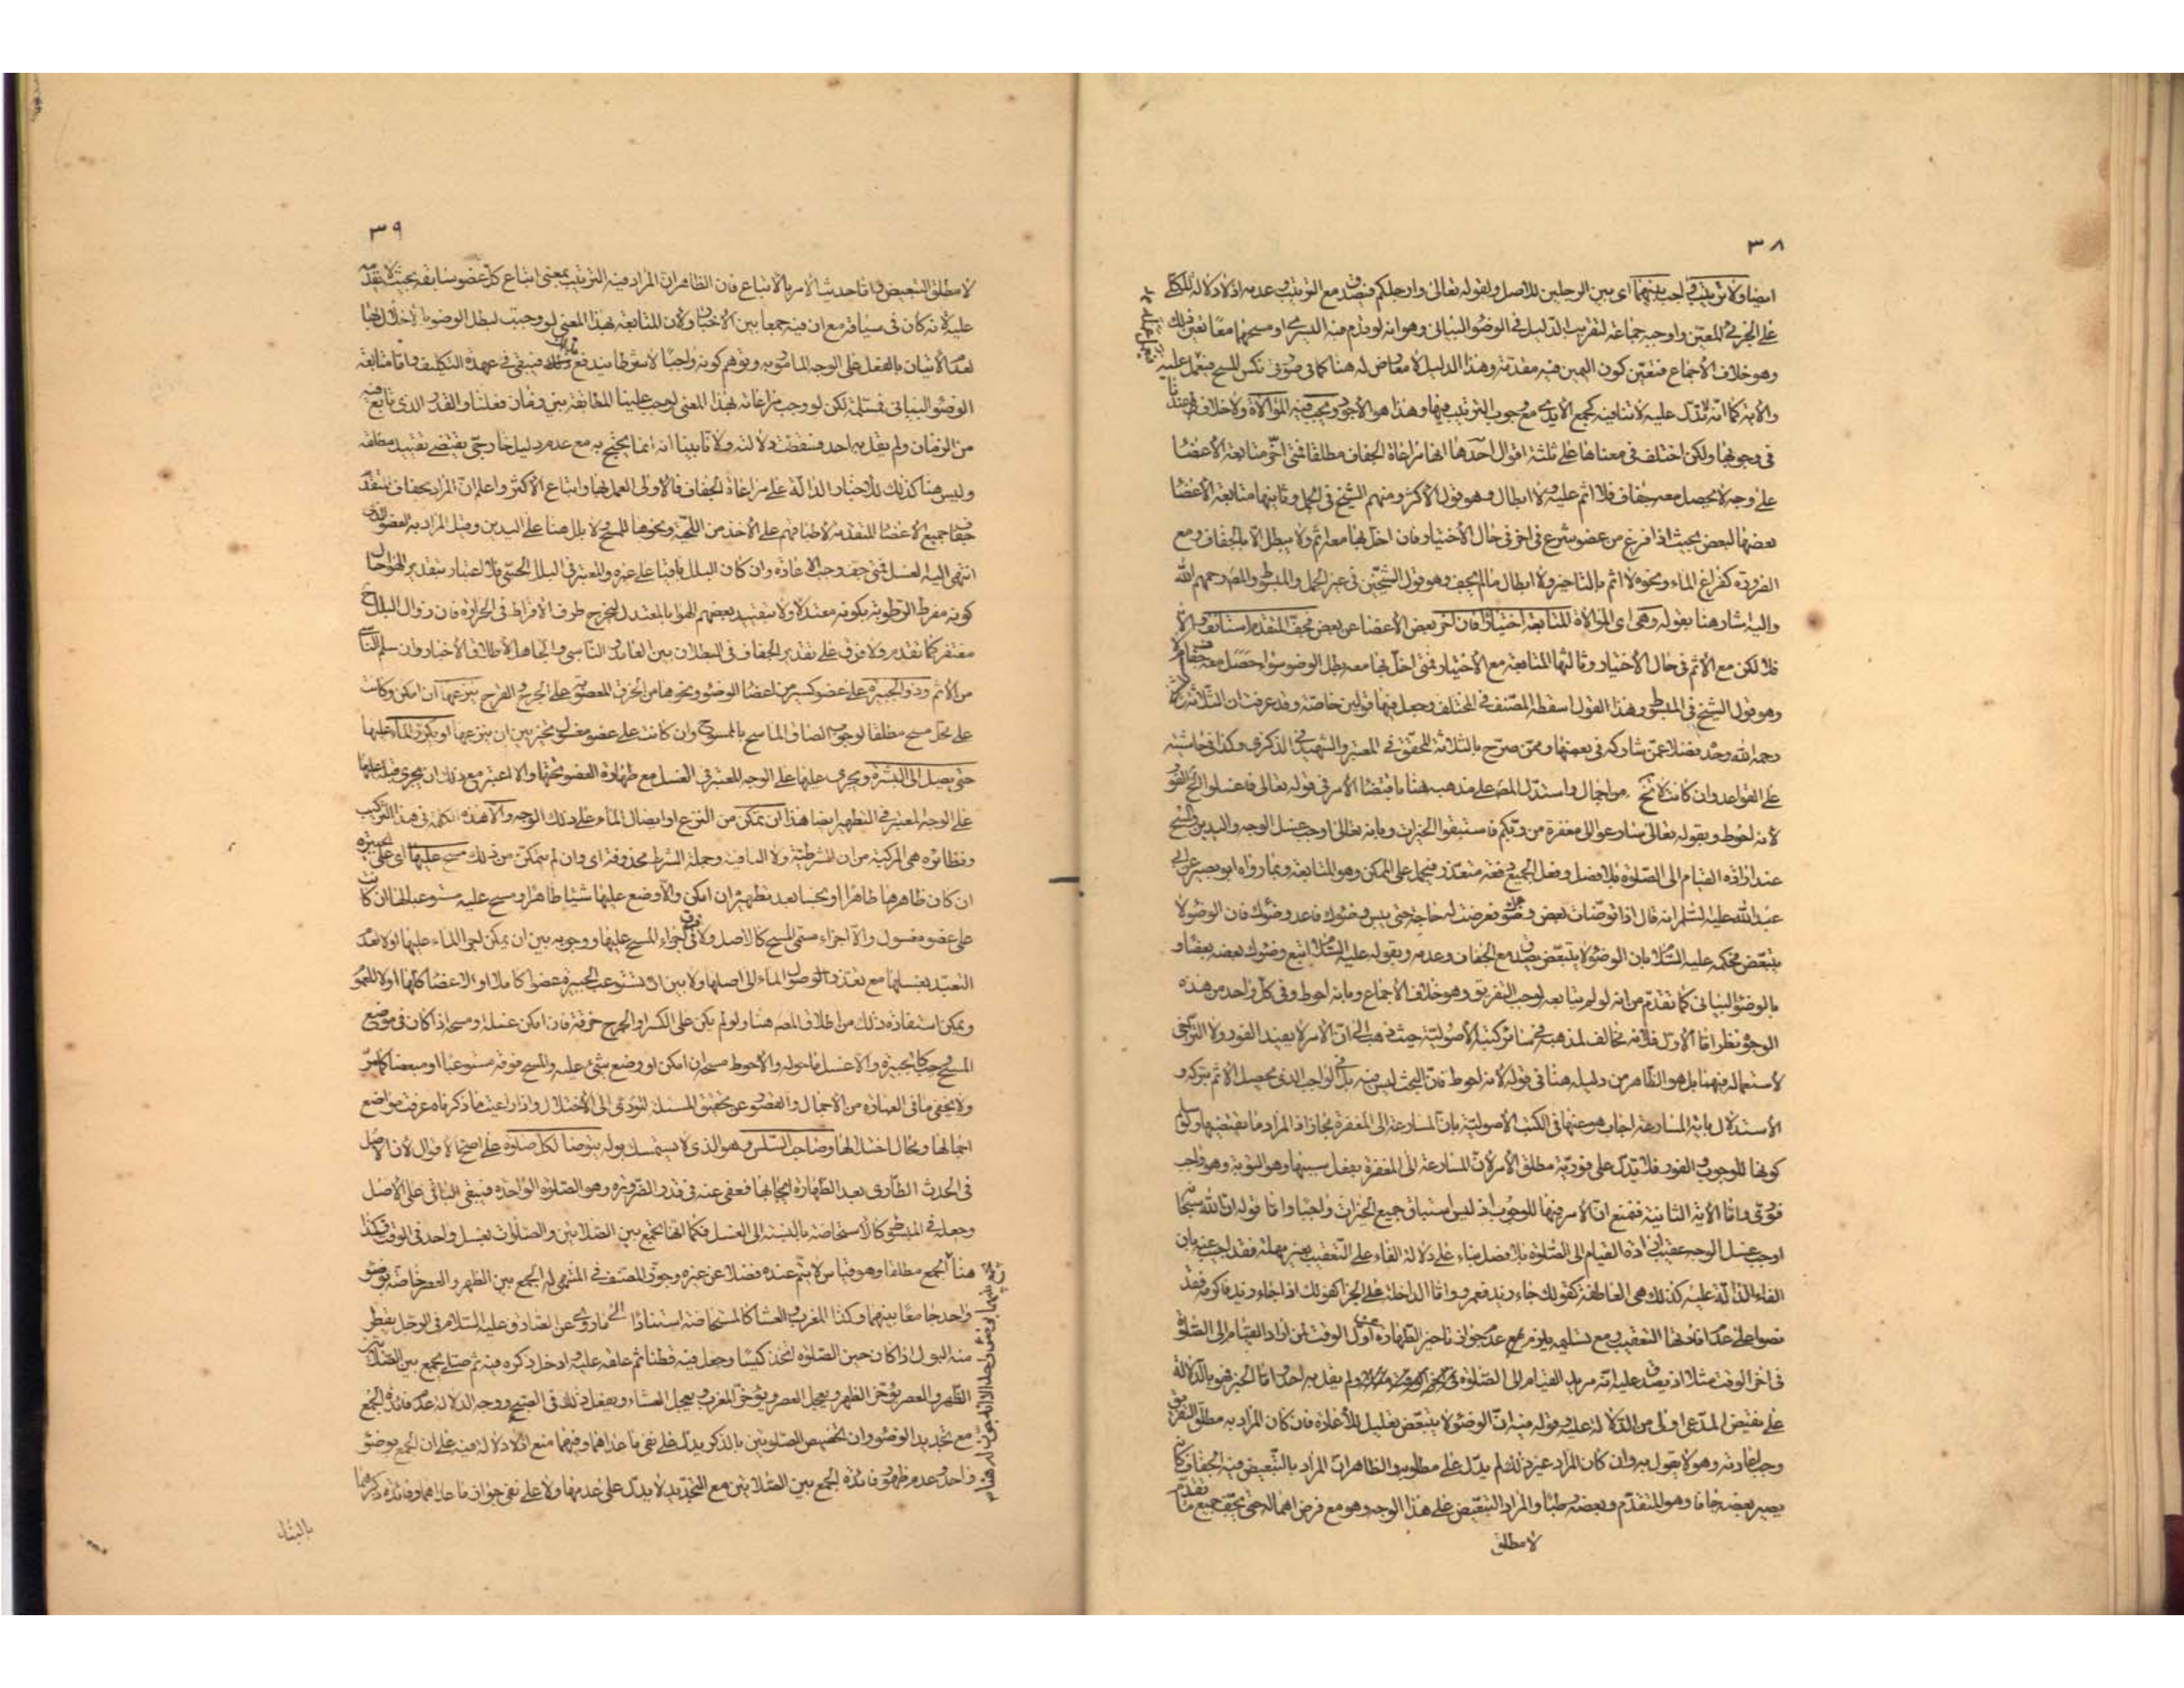 ٣٨
ايضا ولا ترتيب واجب بينهما اى بين الرجلين للاصل ولقوله تعالى وارجلكم فيصدق مع الترتيب وعدمه اذ لا دلالة للكلى
على الجزئى المعين واوجبه جماعة لتقريب الدليل فى الوضوء البيانى وهو انه لو قدم فيه اليسرى او مسحهما معا تعين ذلك
وهو خلاف الاجماع فتعين كون اليمين فيه مقدمة وهذا الدليل لا معارض له هنا كما فى صورتى نكس المسح فيعمل عليه
والاية كما انه لا تدل عليه لا تنافيه كجمع الايدى مع وجوب الترتيب فيها وهذا هو الاجود ويجب فيه الموالاة ولا خلاف عندنا
فى وجوبها ولكن اختلف فى معناها على ثلثة اقوال احدها انها مراعاة الجفاف مطلقا فمتى اخر متابعة الاعضا
على وجه لا يحصل معه جفاف فلا اثم عليه ولا ابطال وهو قول الاكثر ومنهم الشيخ فى الجمل وثانيها متابعة الاعضا
بعضها لبعض بحيث اذا فرغ من عضو شرع فى اخر فى حال الاختيار فان اخل بها معا اثم ولا يبطل الا بالجفاف ومع
الضرورة كفراغ الماء ونحوه لا اثم بالتاخير ولا ابطال ما لم يجف وهو قول الشيخين فى غير الجمل والمبسوط والمصـ رحمهم الله
واليه اشار هنا بقوله وهى اى الموالاة المتابعة اختيارا فان اخر بعض الاعضا عن بعض فجف المتقدم استانف والا
فلا لكن مع الاثم فى حال الاختيار وثالثها المتابعة مع الاختيار فمتى اخل بها معه بطل الوضوء سواء حصل معه جفاف ام لا
وهو قول الشيخ فى المبسوط وهذا القول اسقطه المصنف فى المختلف وجعل فيها قولين خاصة وقد عرفت ان الثلاثة
رحمه الله وحده فضلا عمن شاركه فى بعضها وممن صرح بالثلاثة المحقق فى المعتبر والشهيد فى الذكرى وكذا فى حاشيته
على القواعد وان كانت لا تخ من اجمال واستدل المصـ على مذهبه هنا باقتضا الامر فى قوله تعالى فاغسلوا الخ الفور
لانه احوط وبقوله تعالى سارعوا الى مغفرة من ربكم فاستبقوا الخيرات وبانه تعالى اوجب غسل الوجه واليدين والمسح
عند ارادة القيام الى الصلوة بلا فصل وفعل الجميع دفعة متعذر فيحمل على الممكن وهو المتابعة وبما رواه ابو بصير عن ابى
عبد الله عليه السلام انه قال اذا توضات بعض وضوئك فعرضت لك حاجة حتى يبس وضوئك فاعد وضوئك فان الوضوء لا
يتبعض فحكمه عليه السلام بان الوضوء لا يتبعض يصدق مع الجفاف وعدمه وبقوله عليه السلام اتبع وضوئك بعضه بعضا و
بالوضوء البيانى كما تقدم من انه لو لم يتابعه لوجب التفريق وهو خلاف الاجماع وبانه احوط وفى كل واحد من هذه
الوجوه نظر اما الاول فلانه مخالف لمذهبه فى سائر كتبه الاصولية حيث ذهب الى ان الامر لا يفيد الفور ولا التراخى
لاستعماله فيهما بل هو الظاهر من دليله هنا فى قوله لانه احوط فان البحث ليس فيه بل فى الواجب الذى يحصل الاثم بتركه و
الاستدلال باية المسارعة اجاب هو عنها فى الكتب الاصولية بان المسارعة الى المغفرة مجاز اذ المراد ما يقتضيها ولو سلم
كونها للوجوب والفور فلا تدل على فورية مطلق الامر لان المسارعة الى المغفرة بفعل سببها وهو التوبة وهو واجب
فورى واما الاية الثانية فنمنع ان الامر فيها للوجوب اذ ليس استباق جميع الخيرات واجبا واما قوله ان الله سبحانه
اوجب غسل الوجه عقيب ارادة القيام الى الصلوة بلا فصل بناء على دلالة الفاء على التعقيب بغير مهلة فقد اجيب عنه بان
الفاء الدالة عليه كذلك هى العاطفة كقولك جاء زيد فعمرو واما الداخلة على الجزا كقولك اذا جاء زيد فاكرمه فقد
نصوا على عدم افادتها التعقيب ومع تسليمه يلزم منع عدم جواز تاخير الطهارة عن اول الوقت لمن اراد القيام الى الصلوة
فى اخر الوقت مثلا اذ يصدق عليه انه مريد القيام الى الصلوة ولم يقل به احد واما الخبر فهو بالدلالة
على نقيض المدعى اولى من الدلالة عليه وقوله فيه ان الوضوء لا يتبعض تعليل للاعادة فان كان المراد به مطلق التفريق
وجب اعادته وهو لا يقول به وان كان المراد غير ذلك لم يدل على مطلوبه والظاهر ان المراد بالتبعيض فيه الجفاف كان
يصير بعضه جافا وهو المتقدم وبعضه رطبا والمراد التبعيض على هذا الوجه وهو مع فرض اهماله حتى يجف جميع ما تقدم
لا مطلق
٣٩
لا مطلق التبعيض واما حديث الامر بالاتباع فان الظاهر ان المراد فيه الترتيب بمعنى اتباع كل عضو سابقه بحيث لا يقدمه
عليه لانه كان فى سياقه مع ان فيه جمعا بين الاخبار ولان المتابعة بهذا المعنى لو وجبت لبطل الوضوء بالاخلال بها
لعدم الاتيان بالفعل على الوجه المامور به وتوهم كونه واجبا لا شرطا يندفع بذلك فيبقى فى عهدة التكليف واما متابعة
الوضوء البيانى فمسلمة لكن لو وجب مراعاته بهذا المعنى لوجب علينا المطابقة بين زمان فعلنا والقدر الذى تابع فيه
من الزمان ولم يقل به احد فسقطت دلالته ولانا بينا انه انما يحتج به مع عدم دليل خارجى يقتضى تقييد مطلقه
وليس هنا كذلك للاخبار الدالة على مراعاة الجفاف فالاولى العمل بها واتباع الاكثر واعلم ان المراد بجفاف المتقدم
جفاف جميع الاعضا المتقدمة لاطباقهم على الاخذ من اللحية ونحوها للمسح ولا بلل هنا على اليدين وقيل المراد به العضو الذى
انتهى اليه الغسل فمتى جف وجب الاعادة وان كان البلل باقيا على غيره والمعتبر فى البلل الحسى فلا اعتبار بتقدير الهواء حال
كونه مفرط الرطوبة بكونه معتدلا ولا بتقييد بعضهم الهوا بالمعتدل ليخرج طرف الافراط فى الحرارة فان زوال البلل ح
مغتفر كما تقدم ولا فرق على تقدير الجفاف فى البطلان بين العامد والناسى والجاهل لاطلاق الاخبار وان سلم الناسى
من الاثم وذو الجبيرة على عضو كسير من اعضا الوضوء ونحوها من الخرق المعصوبة على الجرح والقرح ينزعها ان امكن وكانت
على محل مسح مطلقا لوجوب الصاق الماسح بالممسوح وان كانت على عضو مغسول تخير بين ان ينزعها او يكرر الماء عليها
حتى يصل الى البشرة ويجرى عليها على الوجه المعتبر فى الغسل مع طهارة العضو تحتها والا اعتبر مع ذلك ان يجرى قبله عليها
على الوجه المعتبر فى التطهير ايضا هذا ان تمكن من النزع او ايصال الماء على ذلك الوجه والا هذه الكلمة فى هذا التركيب
ونظائره هى المركبة من ان الشرطية ولا النافية وجملة الشرط محذوفة اى وان لم يتمكن من ذلك مسح عليها اى على الجبيرة
ان كان ظاهرها طاهرا او نجسا بعد تطهيره ان امكن والا وضع عليها شيئا طاهرا ومسح عليه مستوعبا لها ان كانت
على عضو مغسول والا اجزاء مسمى المسح كالاصل ولا فرق فى اجزاء المسح عليها ووجوبه بين ان يمكن اجراء الماء عليها او لا لعدم
التعبد بغسلها مع تعذر وصول الماء الى اصلها ولا بين ان تستوعب الجبيرة عضوا كاملا او الاعضا كلها او لا للعموم
ويمكن استفادة ذلك من اطلاق المصـ هنا ولو لم يكن على الكسر او الجرح خرقة فان امكن غسله ومسحه اذا كان فى موضع
المسح وجب كالجبيرة والا غسل ما حوله والاحوط مسحه ان امكن او وضع شئ عليه والمسح فوقه مستوعبا او مبعضا كما مر
ولا يخفى ما فى العبارة من الاجمال والقصور عن تحقيق المسئلة المؤدى الى الاختلال واذا راعيت ما ذكرناه عرفت مواضع
اجمالها ومحال اختلالها وصاحب السلس وهو الذى لا يستمسك بوله يتوضا لكل صلوة على اصح الاقوال لان الاصل
فى الحدث الطارى بعد الطهارة ايجابها فعفى عنه فى قدر الضرورة وهو الصلوة الواحدة فيبقى الباقى على الاصل
وجعله فى المبسوط كالاستحاضة بالنسبة الى الغسل فكما انها تجمع بين الصلاتين والصلوات بغسل واحد فى الوقت فكذا
هنا يجمع مطلقا وهو قياس لا يتم عنده فضلا عن غيره وجوز المصنف فى المنتهى له الجمع بين الظهر والعصر خاصة بوضوء
واحد جامعا بينهما وكذا المغرب والعشا كالمستحاضة استنادا الى ما روى عن الصادق عليه السلام فى الرجل يقطر
منه البول اذا كان حين الصلوة اتخذ كيسا وجعل فيه قطنا ثم علقه عليه وادخل ذكره فيه ثم صلى يجمع بين الصلاتين
الظهر والعصر يؤخر الظهر ويعجل العصر ويؤخر المغرب ويعجل العشاء ويفعل ذلك فى الصبح ووجه الدلالة عدم فائدة الجمع
مع تجديد الوضوء وان تخصيص الصلوتين بالذكر يدل على نفى ما عداهما وفيهما منع اذ لا دلالة فيه على ان الجمع بوضوء
واحد وعدم ظهور فائدة الجمع بين الصلاتين مع التجديد لا يدل على عدمها ولا على نفى جواز ما عداهما وفائدة ذكرهما